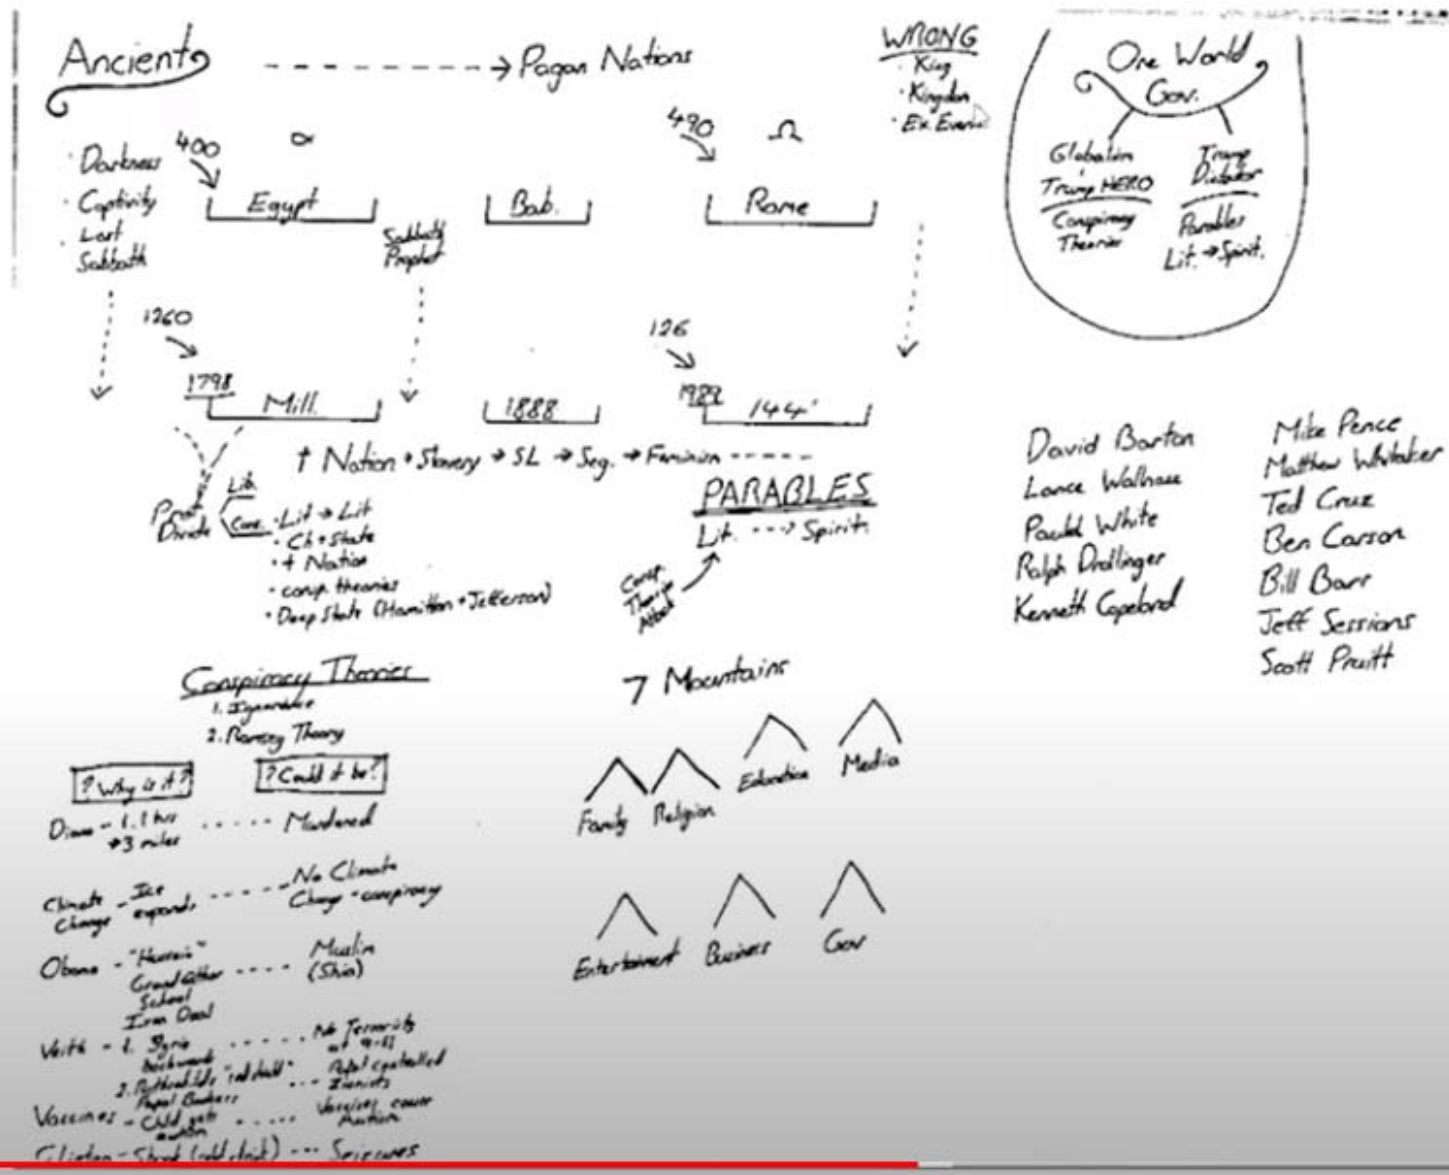 Ancient
Pagan Nations
WRONG
· King
· Kingdom
· Ex. Events
One World
Gov.
Globalism
Trump HERO
Conspiracy
Theories
Trump
Dictator
Parables
Lit. → Spirit.
· Darkness
· Captivity
· Lost
Sabbath
400
α
Egypt
Sabbath
Prophet
Bab.
490
Ω
Rome
1260
1798
Mill.
1888
126
1989
144
† Nation → Slavery → SL → Seg. → Feminism
Prot
Divide
Lib.
Cons.
· Lit → Lit
· Ch + State
· † Nation
- consp. theories
· Deep State (Hamilton + Jefferson)
PARABLES
Lit. ---> Spirit.
Consp.
Theories
Attack
David Barton
Lance Wallnau
Paula White
Ralph Drollinger
Kenneth Copeland
Mike Pence
Matthew Whitaker
Ted Cruz
Ben Carson
Bill Barr
Jeff Sessions
Scott Pruitt
Conspiracy Theories
1. Ignorance
2. Ramsey Theory
? Why is it?
? Could it be?
Diana - 1.1 hrs
→3 miles
Murdered
Climate
Change
- Ice
expands
No Climate
Change - conspiracy
Obama - "Hussein"
Grandfather
School
Iran Deal
Muslim
(Shia)
Veith - 1. Syria
backwards
No Terrorists
at 9-11
2. Rothschilds "red shield"
Papal Bankers
Papal controlled
Zionists
Vaccines - Child gets
autism
Vaccines cause
Autism
Clinton - Shook (cold drink) --- Seizures
7 Mountains
Family
Religion
Education
Media
Entertainment
Business
Gov